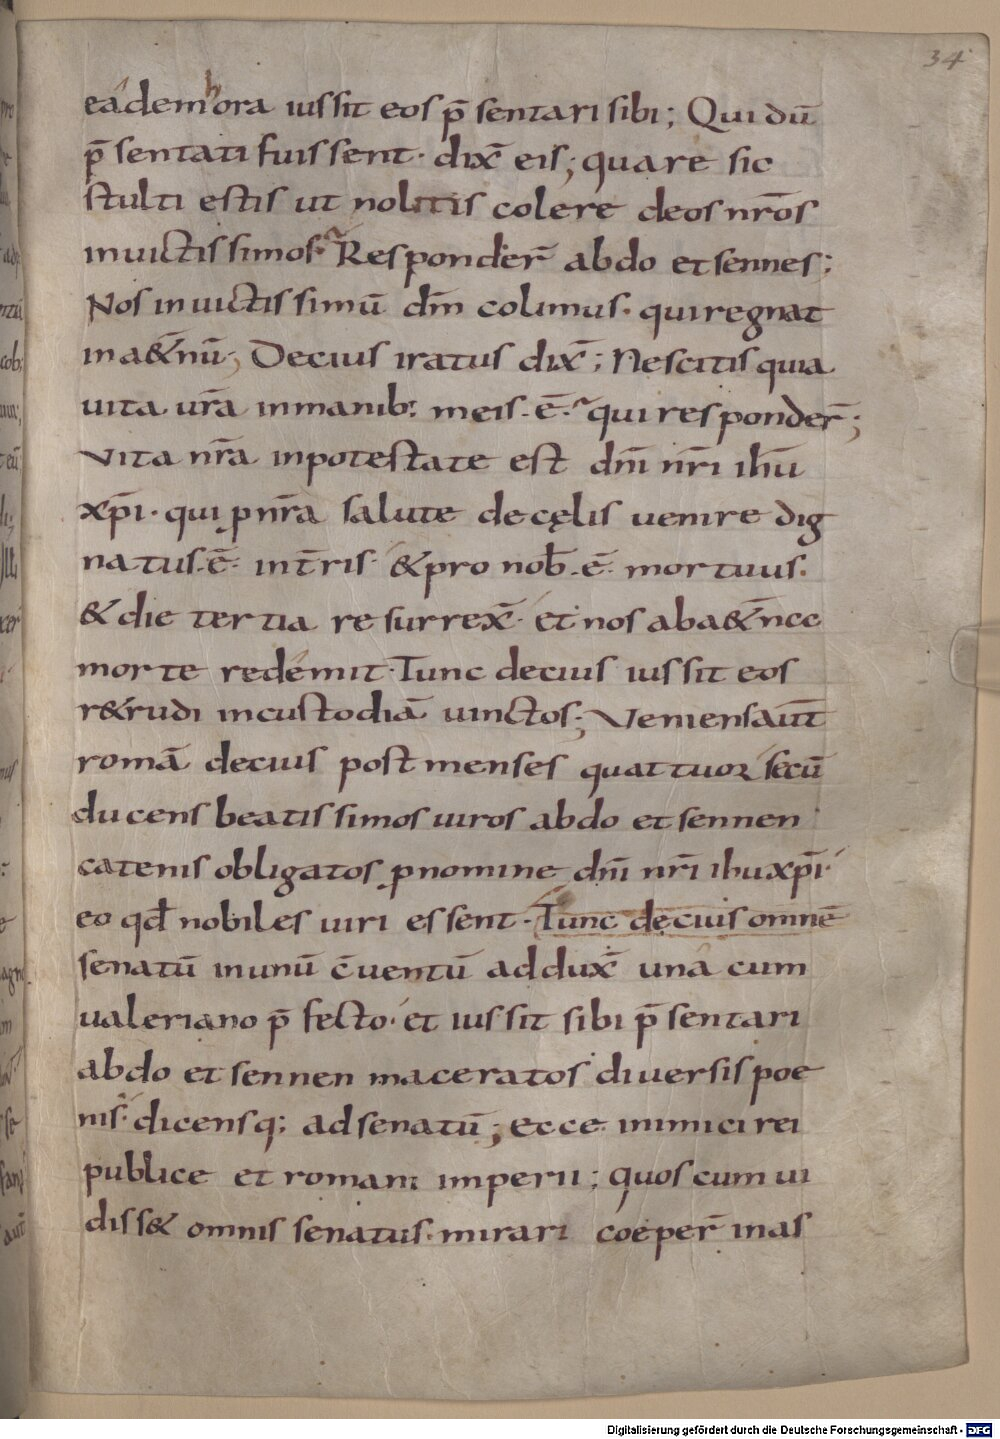 34
eadem hora iussit eos p̄sentari sibi; Qui dū
p̄sentati fuissent· dix̄ eis; quare sic
stulti estis ut nolitis colere deos nr̄os
inuictissimos· Responder̄ abdo et sennes;
Nos inuictissimū dm̄ colimus· qui regnat
in a&̄nū; Decius iratus dix̄; Nescitis quia
uita ur̄a in manib; meis·ē· qui responder̄;
Vita nr̄a in potestate est dn̄i nr̄i ih̄u
xp̄i· qui ꝑ nr̄a salute de cęlis uenire dig
natus·ē· in tr̄ris· & pro nob̄·ē· mortuus·
& die tertia resurrex̄· et nos ab a&̄ne
morte redemit· Tunc decius iussit eos
r&rudi in custodiā uinctos; Veniens aut̄
romā decius post menses quattuor secū
ducens beatissimos uiros abdo et sennen
catenis obligatos ꝓ nomine dn̄i nr̄i ihu xp̄i·
eo qd̄ nobiles uiri essent· Tunc decius omnē
senatū in unū c̄uentū addux̄ una cum
ualeriano p̄fecto· et iussit sibi p̄sentari
abdo et sennen maceratos diuersis poe
nis· dicensq; ad senatū; ecce inimici rei
publice et romani imperii; quos cum ui
diss& omnis senatus· mirari coeper̄ in as
Digitalisierung gefördert durch die Deutsche Forschungsgemeinschaft - DFG